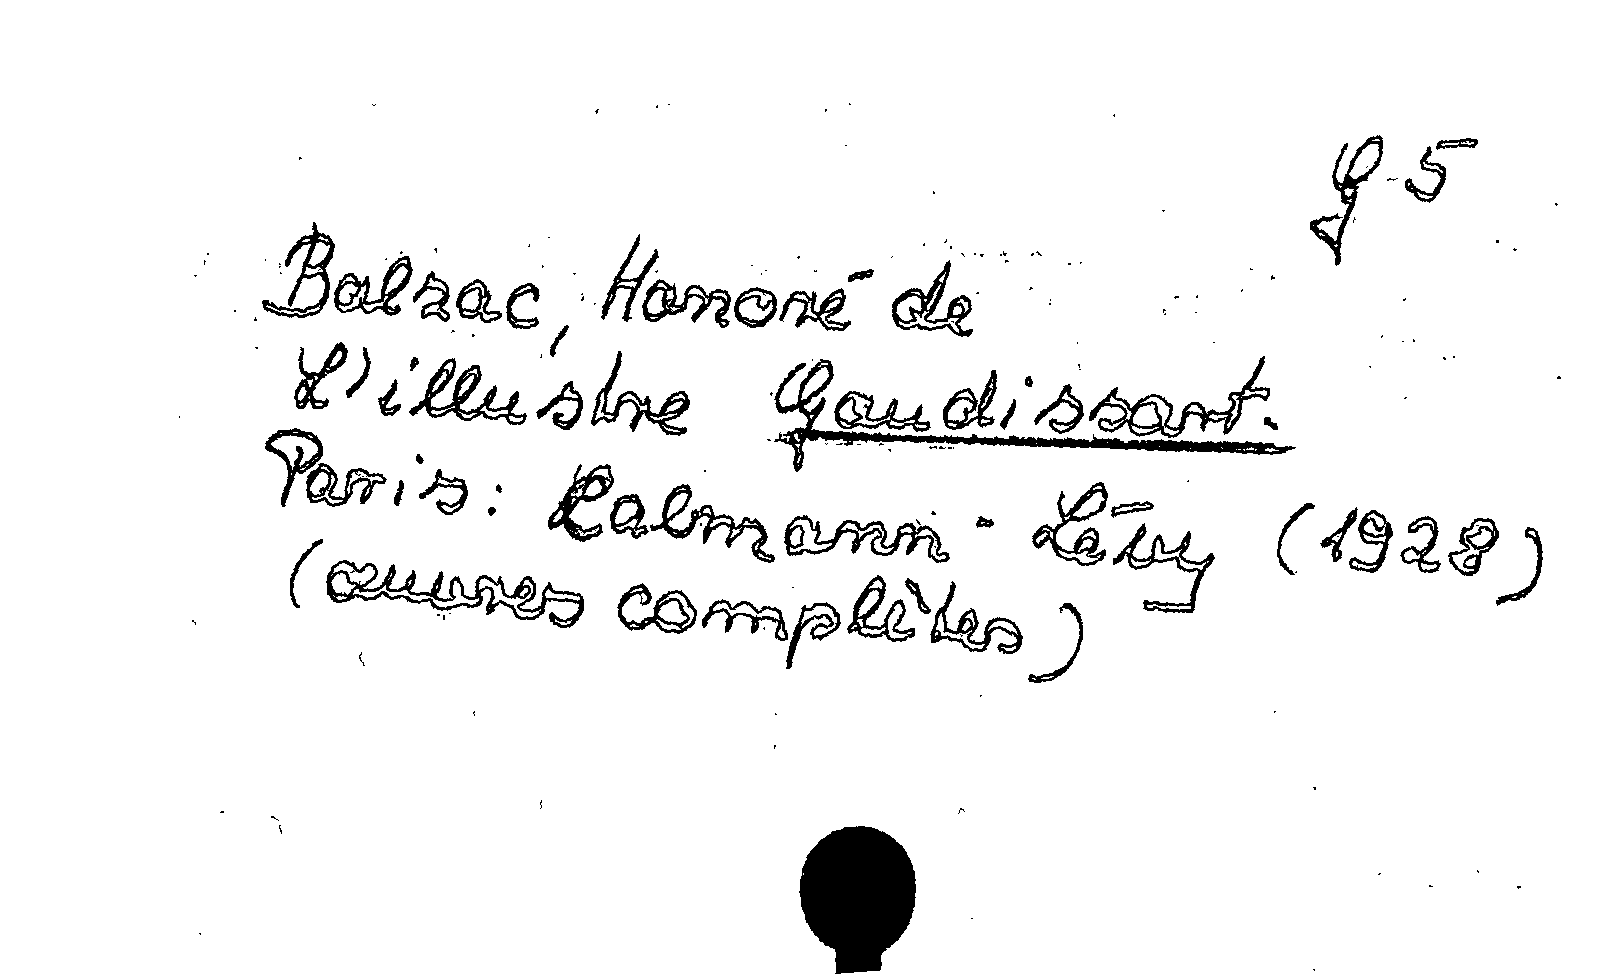 G 5
Balzac, Honoré de
L'illustre Gaudissart.
Paris: Calmann-Lévy (1928)
(œuvres complètes)